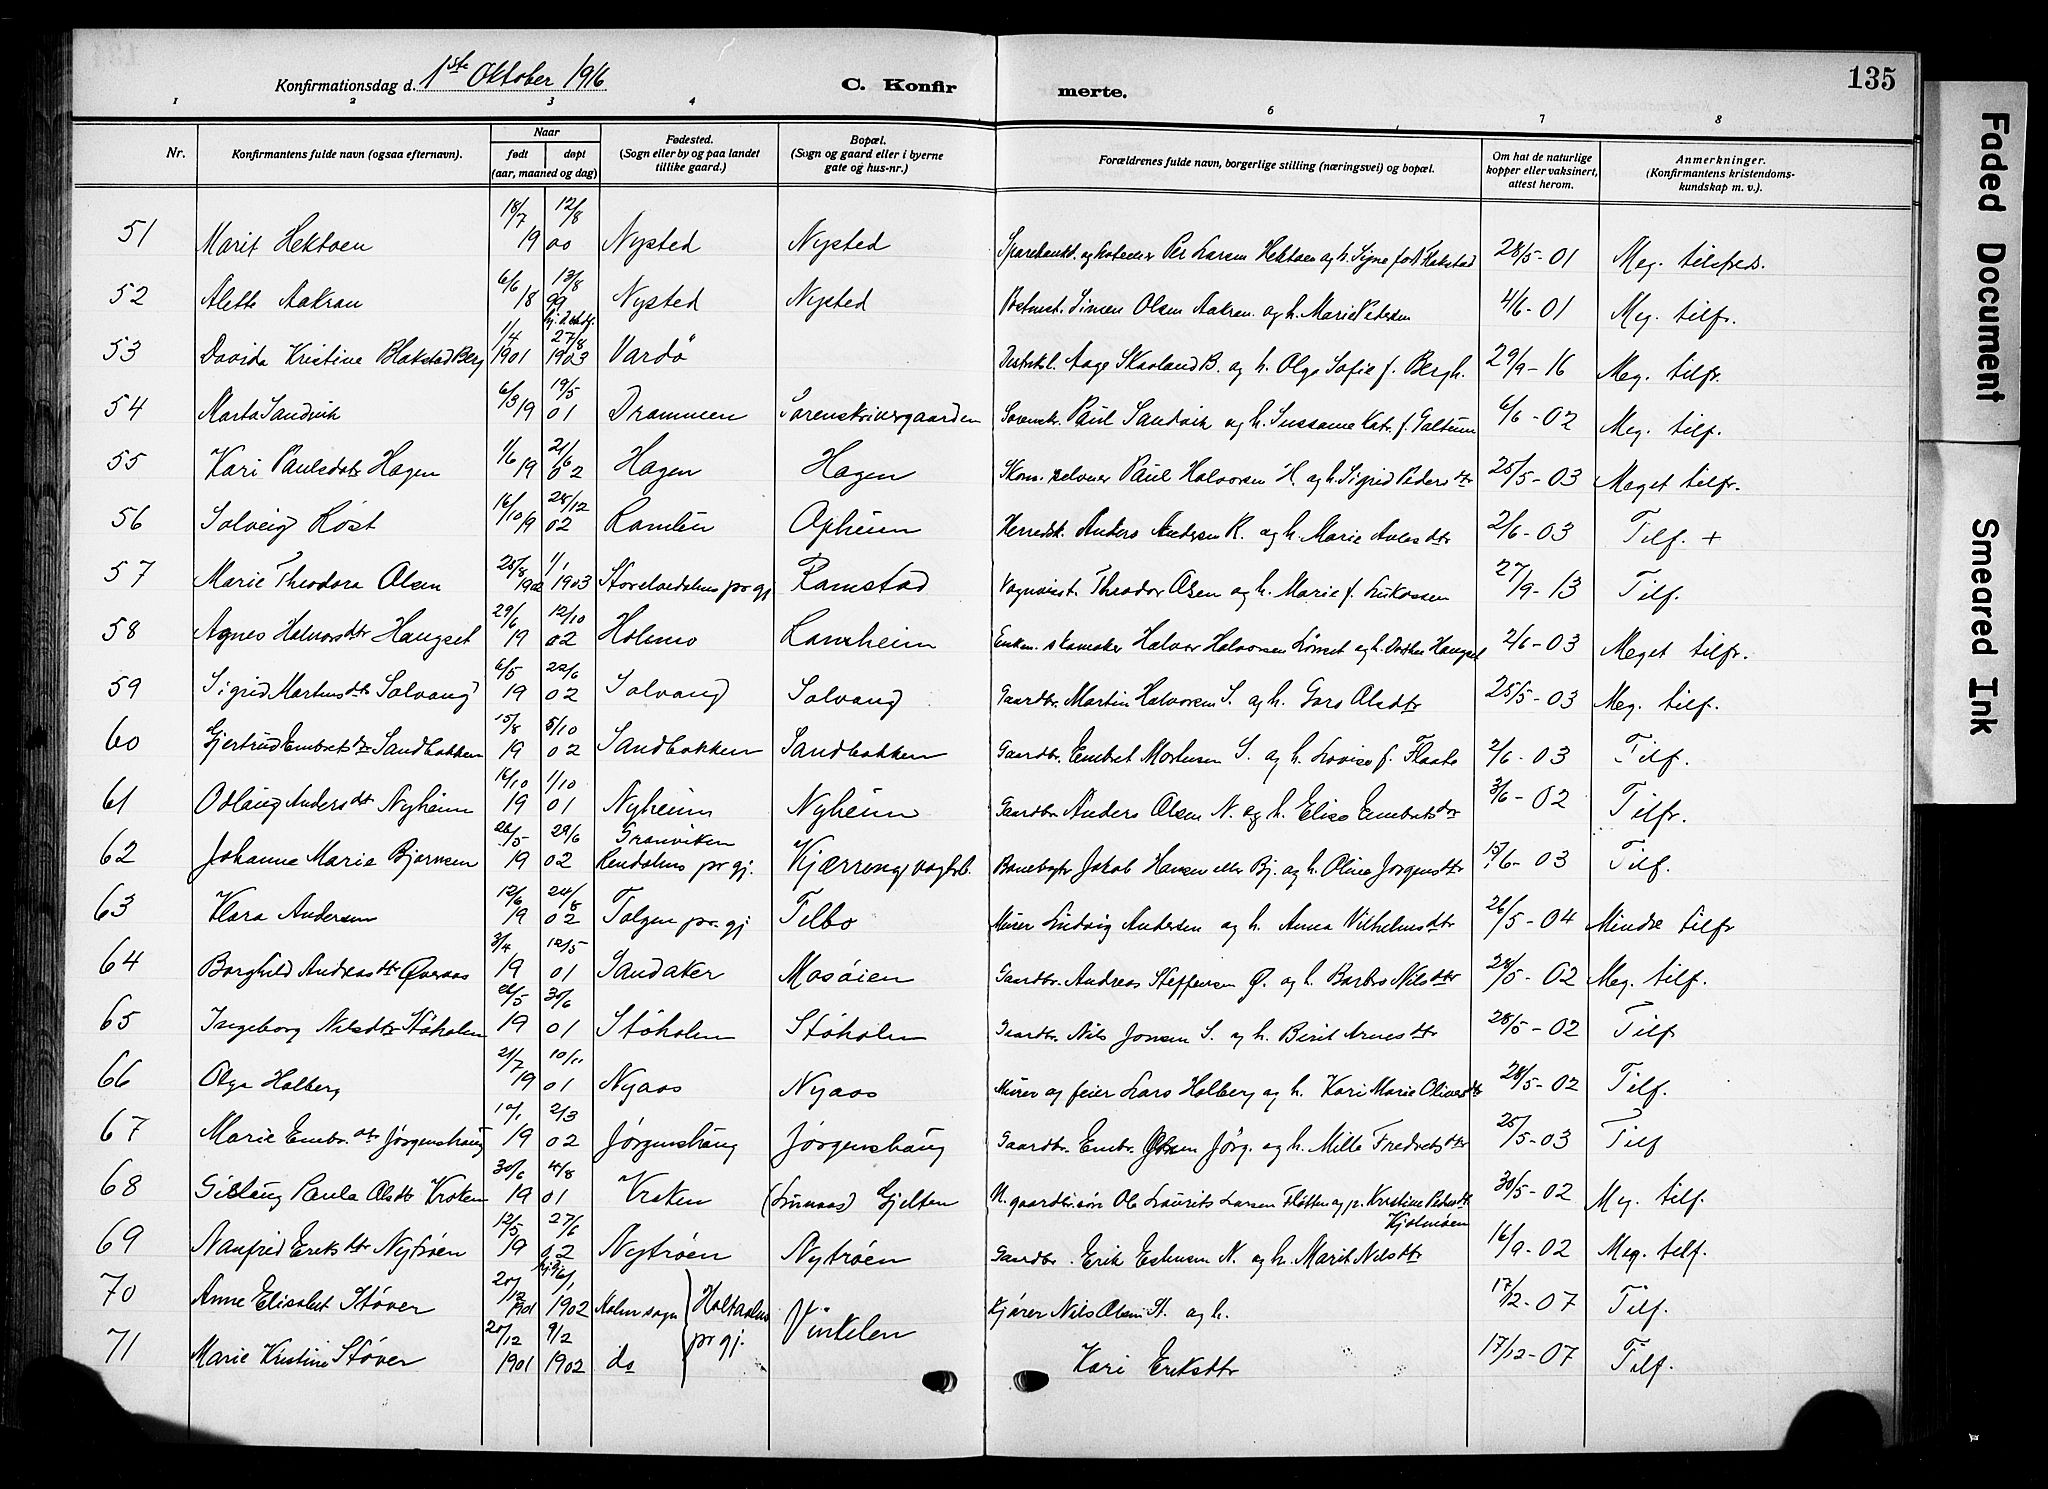 135
Konfirmationsdag d. 1ste Oktober 1916 C. Konfirmerte.
1 2 3 4 6 7 8
Nr. Konfirmantens fulde navn (ogsaa efternavn). Naar født døpt (aar, maaned og dag) Fødested. (Sogn eller by og paa landet tillike gaard.) Bopæl. (Sogn og gaard eller i byerne gate og hus-nr.) Forældrenes fulde navn, borgerlige stilling (næringsvei) og bopæl. Om hat de naturlige kopper eller vaksinert, attest herom. Anmerkninger. (Konfirmantens kristendomskundskap m. v.).
51 Marit Hektoen 18/7 19 12/8 00 Nysted Nysted Per Larsen Hektoen og h. Signe født Hakstad 28/5-01 Meg. tilfreds.
52 Alette Aakran 6/6 18 13/8 99 Nysted Nysted Postmest. Simen Olsen Aakran og h. Marie Pedersen 4/6-01 Meg. tilfr.
53 Davida Kristine Blakstad Berg 1/4 1901 27/8 1903 Vardö Distriktsl. Aage Skavland B. og h. Olga Sofie f. Bergh. 29/9-16 Meg. tilfr.
54 Marta Sandvik 6/3 19 19/5 01 Drammen Sorenskrivergaarden Sorenskr. Paul Sandvik og h. Sussanne Katr. f. Galtung 6/6-02 Meg. tilf.
55 Kari Paulsdatr Hagen 1/6 19 21/6 02 Hagen Hagen Paul Halvorsen H. og h. Sigrid Pedersdtr 25/5-03 Meget tilfr.
56 Solveig Røst 16/10 19 28/12 02 Ramlün Opheim Herredsk. Anders Andersen R. og h. Marie Avlesdtr 2/6-03 Tilf. +
57 Marie Theodora Olsen 25/8 1902 1/1 1903 Storelvedalens pr gj Ramstad Vognvisit. Theodor Olsen og h. Marie f. Lukassen 27/9-13 Tilf.
58 Agnes Halvorsdtr Haugset 29/6 19 12/10 02 Holmo Lansheim Enkem. skomaker Halvor Halvorsen Lømset og h. Dorthea Haugset 2/6-03 Meget tilfr.
59 Sigrid Martinsdtr Solvang 6/5 19 22/6 02 Solvang Solvang Gaardbr. Martin Halvorsen S. og h. Guro Olsdtr 25/5-03 Meg. tilf.
60 Gjertrud Embretsdtr Sandbakken 15/8 19 5/10 02 Sandbakken Sandbakken Gaardbr. Embret Mortensen S. og h. Lovise f. Flaate 2/6-03 Tilf.
61 Odlaug Andersdtr Nyheim 16/10 19 1/10 01 Nyheim Nyheim Gaardbr. Anders Olsen N. og h. Elise Embretsdtr 3/6-02 Tilfr.
62 Johanna Marie Bjørnsen 26/5 19 29/6 02 Granviken Rendalens pr gj. Kjærreng vagtb. Banevogtr Jakob Hansen eller Bj. og h. Olina Jørgensdtr 15/6-03 Tilf.
63 Klara Andersen 12/6 19 24/8 02 Tolgen pr. gj Telbo Murer Ludvig Andersen og h. Anna Vilhelmsdtr 26/5-04 Mindre tilfr
64 Borghild Andreasdtr Øveraas 3/4 19 12/5 01 Sandaker Mosöien Gaardbr. Andreas Steffensen Ø. og h. Barbro Nilsdtr 28/5-02 Meg. tilf.
65 Ingeborg Nilsdtr Stöholen 26/5 19 30/6 01 Stöholen Stöholen Gaardbr. Nils Jonsen S. og h. Berit Arnesdtr 28/5-02 Tilf
66 Olga Holberg 21/7 19 10/11 01 Nyaas Nyaas Murer og feier Lars Holberg og h. Kari Marie Olivesdtr 28/5-02 Tilf.
67 Marie Embr.dtr Jörgenshaug 10/1 19 2/3 02 Jörgenshaug Jörgenshaug Gaardbr. Embr. Olsen Jörg. og h. Mille Fredriksdtr 25/5-03 Tilf
68 Gislaug Paula Olsdtr Vrsten 30/6 19 4/8 01 Vrsten (Lunaas) Gjelten U. gaardbr.sön Ole Laurits Larsen Fløtten og p. Kristine Pedersdtr Kjølmöen 30/5-02 Meg. tilf.
69 Nanfred Eriksdtr Nytröen 12/5 19 27/6 02 Nytröen Nytröen Gaardbr. Erik Estensen N. og h. Marit Nilsdtr 16/9-02 Meg. tilf.
70 Anne Elisabet Støver 20/12 1901 6/1 1902 Aalen sogn Holtaalens pr gj. Vinkelen Kjører Nils Olsen St. og h. 17/12-07 Tilf.
71 Marie Kristine Støver 20/12 1901 9/2 1902 do Kari Eriksdtr 17/12-07 Tilf.
Faded Document
Smeared Ink